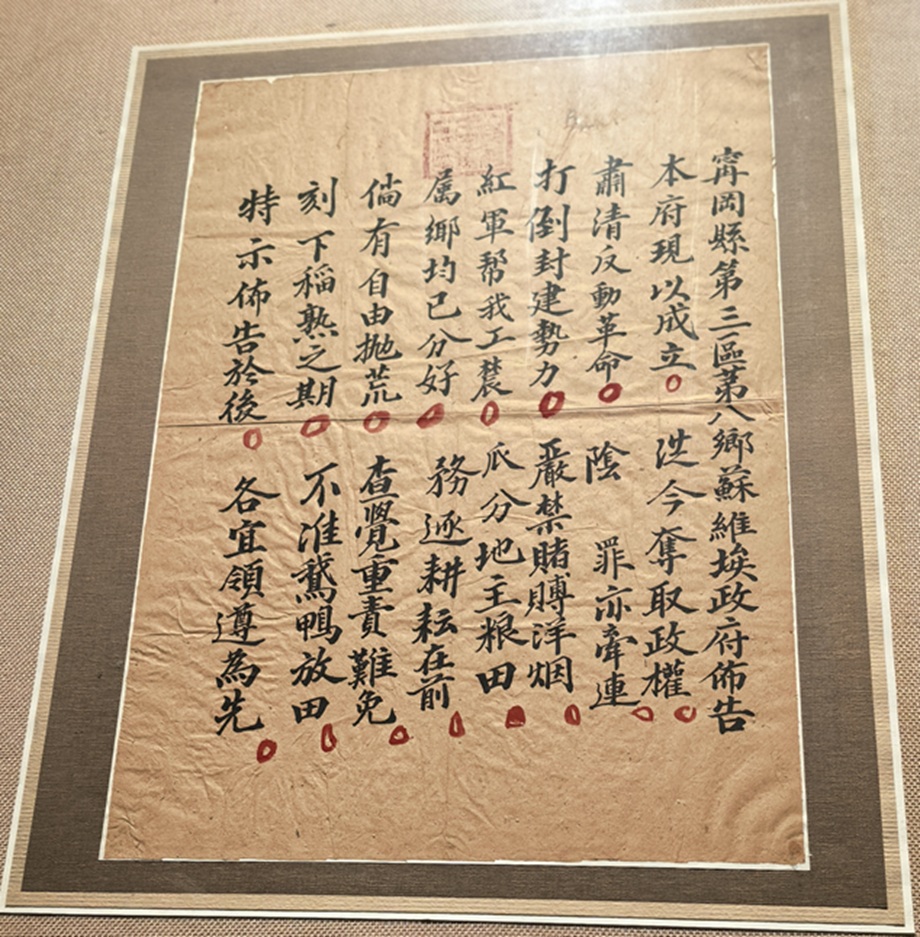 甯岡縣第三區第八鄉蘇維埃政府佈告
本府現以成立 洗今奪取政權
肅清反動革命 陰 罪亦牽連
打倒封建勢力 嚴禁賭賻洋烟
紅軍幇我工農 瓜分地主粮田
属鄉均已分好 務逐耕耘在前
倘有自由抛荒 查覺重責難免
刻下稲熟之期 不准鵞鴨放田
特示佈告於後 各宜領遵為先